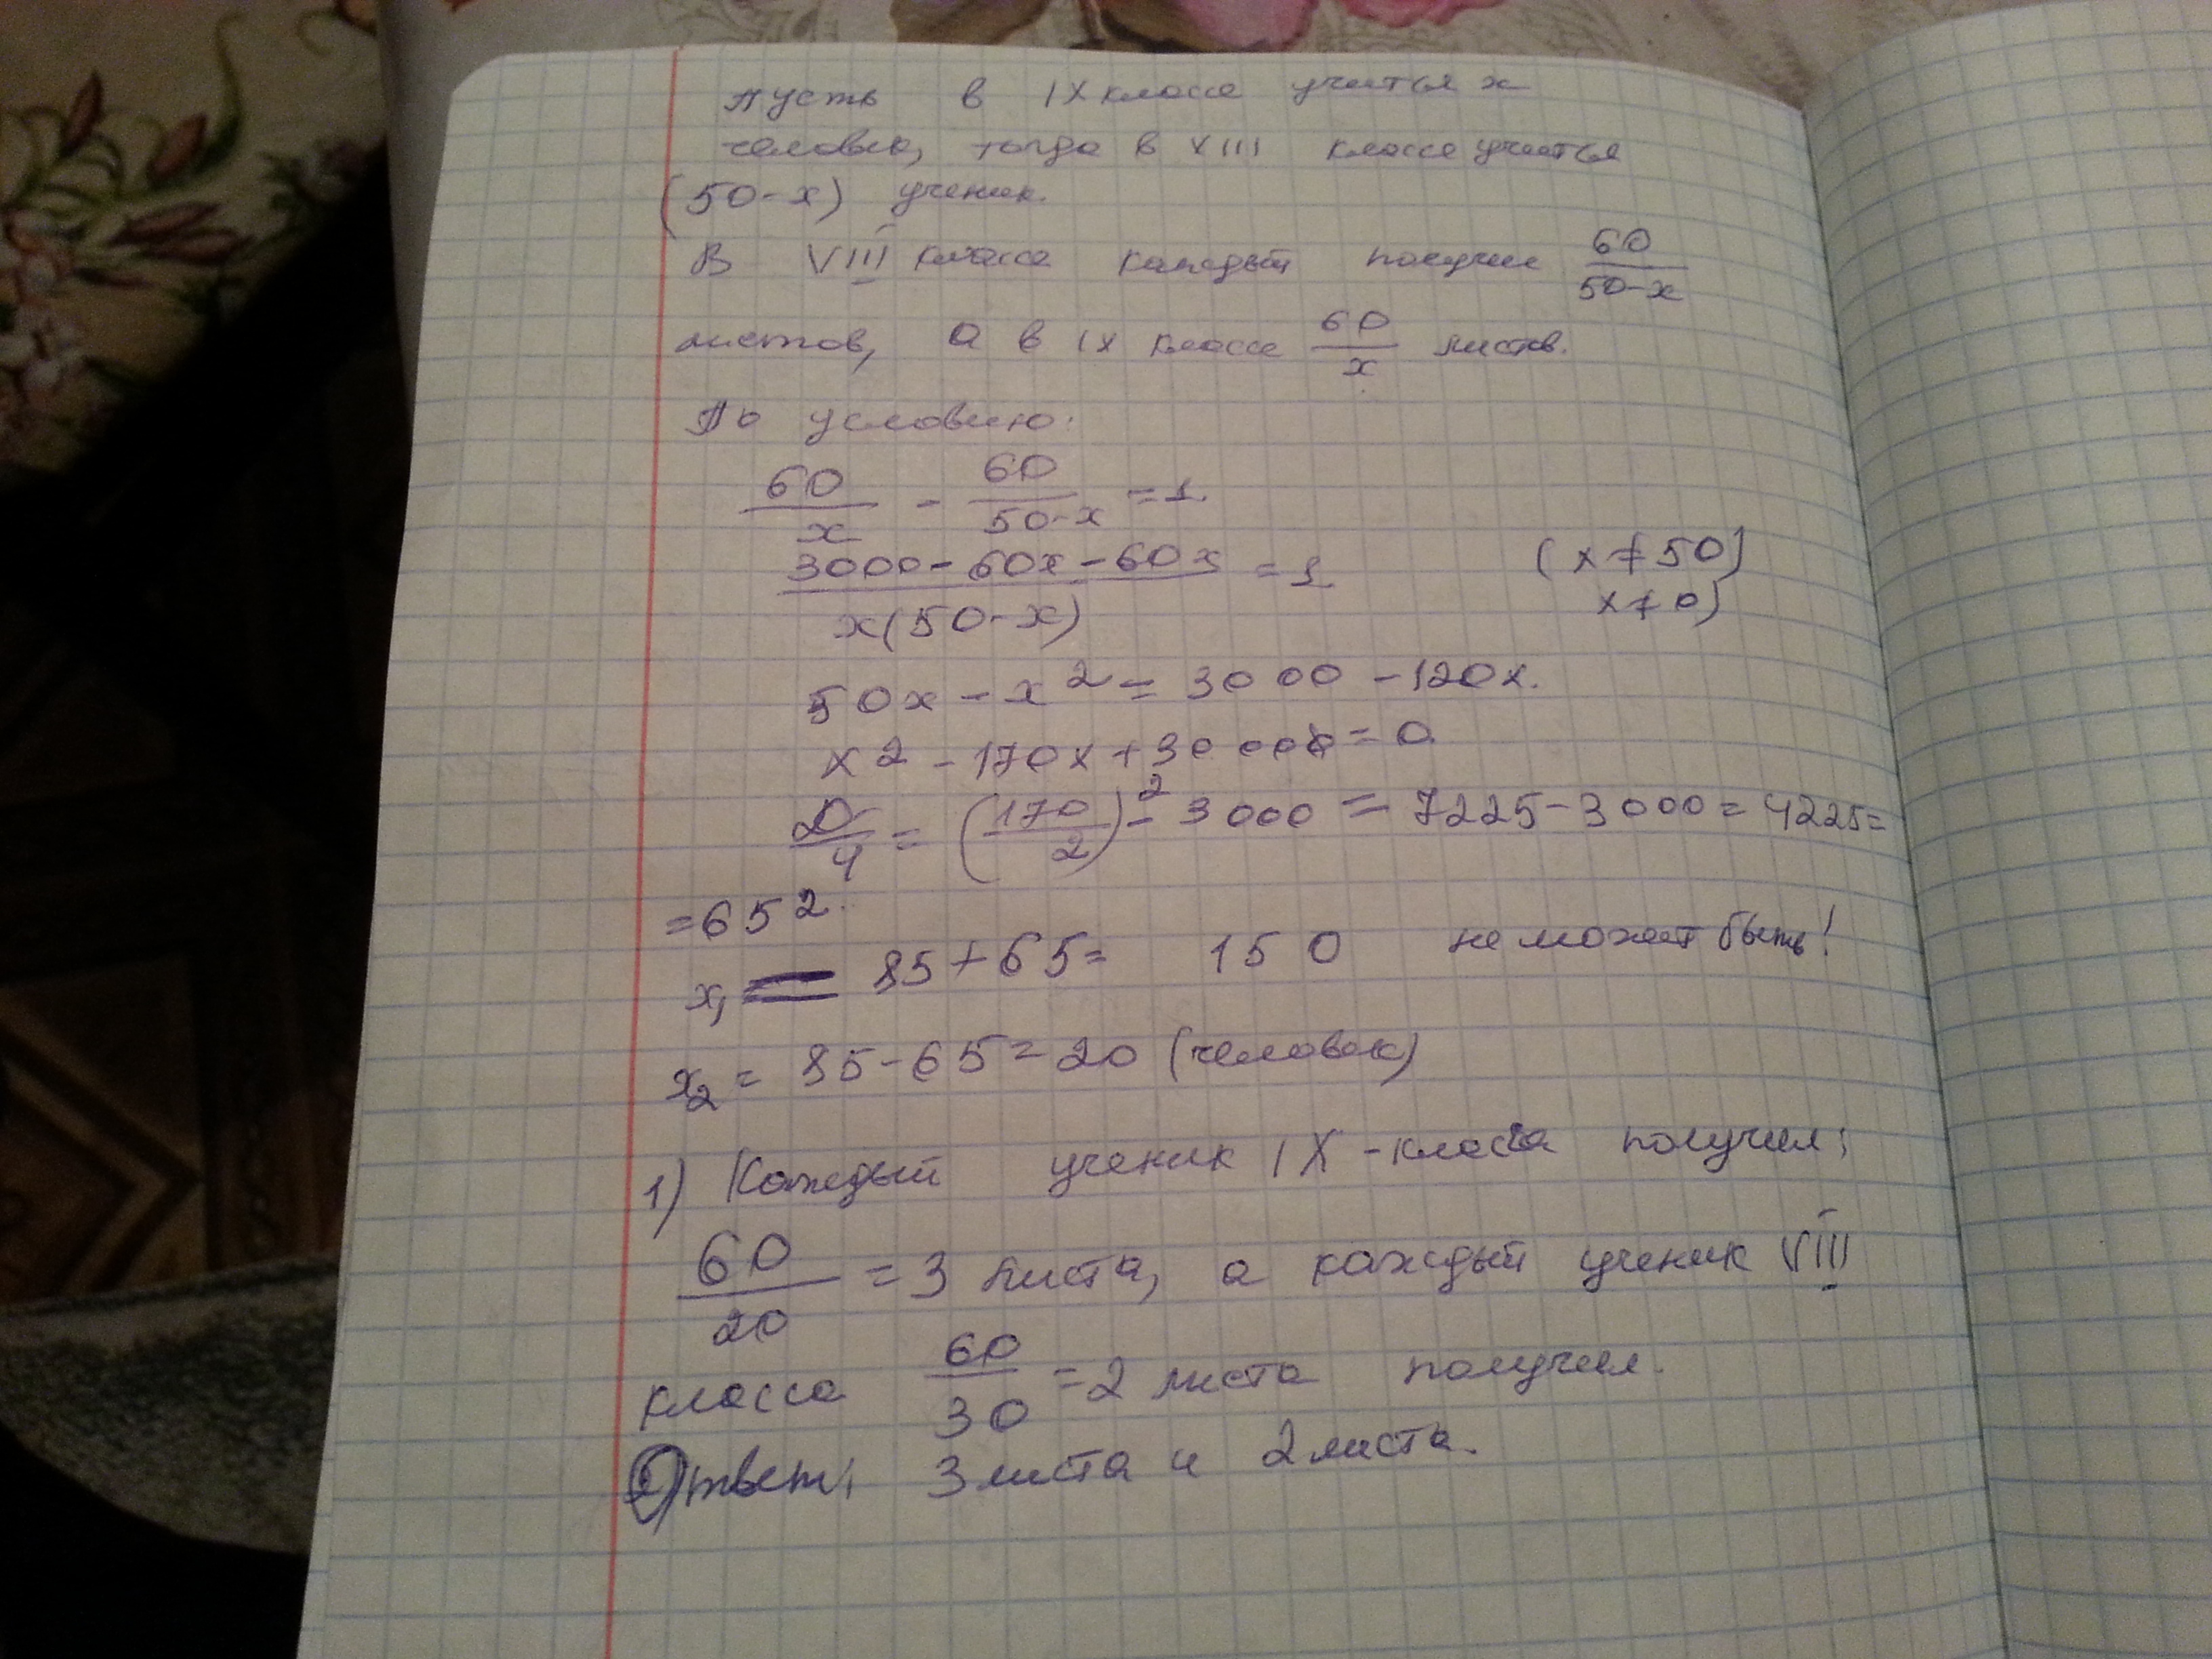 Пусть в IX классе учиться x
человек, тогда в XIII классе учиться
(50-x) ученик.
В VIII классе каждый получил 60/(50-x)
листов, а в IX классе 60/x листов.
По условию:
60/x - 60/(50-x) = 1.
(3000-60x-60x)/(x(50-x)) = 1. (x≠50)
x≠0)
50x - x² = 3000 - 120x.
x² - 170x + 3000 = 0.
D/4 = (170/2)² - 3000 = 7225 - 3000 = 4225 =
= 65².
x₁ = 85 + 65 = 150 не может быть!
x₂ = 85 - 65 = 20 (человек)
1) Каждый ученик IX - класса получил;
60/20 = 3 листа, а каждый ученик VIII
класса 60/30 = 2 листа получил.
Ответ; 3 листа и 2 листа.